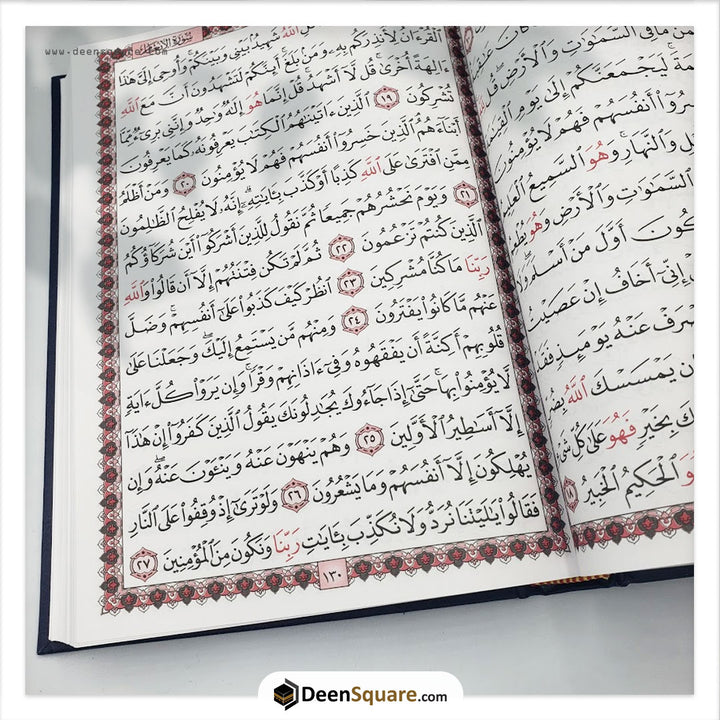 مَا فِى ٱلسَّمَٰوَٰتِ وَٱلْأَرْضِ
لَيَجْمَعَنَّكُمْ إِلَىٰ يَوْمِ
أَنفُسَهُمْ فَهُمْ لَا يُؤْمِنُونَ
وَٱلنَّهَارِ وَهُوَ ٱلسَّمِيعُ
ٱلسَّمَٰوَٰتِ وَٱلْأَرْضِ وَهُوَ
أَوَّلَ مَنْ أَسْلَمَ
إِنِّىٓ أَخَافُ إِنْ عَصَيْتُ
عَنْهُ يَوْمَئِذٍ
يَمْسَسْكَ ٱللَّهُ
بِخَيْرٍ فَهُوَ عَلَىٰ كُلِّ
ٱلْحَكِيمُ ٱلْخَبِيرُ ١٨
www.deensquare.com
سُورَةُ ٱلْأَنْعَامِ
ٱللَّهُ شَهِيدٌۢ بَيْنِى وَبَيْنَكُمْ وَأُوحِىَ إِلَىَّ هَٰذَا
ٱلْقُرْءَانُ لِأُنذِرَكُم بِهِۦ وَمَنۢ بَلَغَ أَئِنَّكُمْ لَتَشْهَدُونَ أَنَّ مَعَ ٱللَّهِ
ءَالِهَةً أُخْرَىٰ قُل لَّآ أَشْهَدُ قُلْ إِنَّمَا هُوَ إِلَٰهٌ وَٰحِدٌ وَإِنَّنِى بَرِىٓءٌ مِّمَّا
تُشْرِكُونَ ١٩ ٱلَّذِينَ ءَاتَيْنَٰهُمُ ٱلْكِتَٰبَ يَعْرِفُونَهُۥ كَمَا يَعْرِفُونَ
أَبْنَآءَهُمُ ٱلَّذِينَ خَسِرُوٓا۟ أَنفُسَهُمْ فَهُمْ لَا يُؤْمِنُونَ ٢٠ وَمَنْ أَظْلَمُ
مِمَّنِ ٱفْتَرَىٰ عَلَى ٱللَّهِ كَذِبًا أَوْ كَذَّبَ بِـَٔايَٰتِهِۦٓ إِنَّهُۥ لَا يُفْلِحُ ٱلظَّٰلِمُونَ
٢١ وَيَوْمَ نَحْشُرُهُمْ جَمِيعًا ثُمَّ نَقُولُ لِلَّذِينَ أَشْرَكُوٓا۟ أَيْنَ شُرَكَآؤُكُمُ
ٱلَّذِينَ كُنتُمْ تَزْعُمُونَ ٢٢ ثُمَّ لَمْ تَكُن فِتْنَتُهُمْ إِلَّآ أَن قَالُوا۟ وَٱللَّهِ
رَبِّنَا مَا كُنَّا مُشْرِكِينَ ٢٣ ٱنظُرْ كَيْفَ كَذَبُوا۟ عَلَىٰٓ أَنفُسِهِمْ وَضَلَّ
عَنْهُم مَّا كَانُوا۟ يَفْتَرُونَ ٢٤ وَمِنْهُم مَّن يَسْتَمِعُ إِلَيْكَ وَجَعَلْنَا عَلَىٰ
قُلُوبِهِمْ أَكِنَّةً أَن يَفْقَهُوهُ وَفِىٓ ءَاذَانِهِمْ وَقْرًا وَإِن يَرَوْا۟ كُلَّ ءَايَةٍ
لَّا يُؤْمِنُوا۟ بِهَا حَتَّىٰٓ إِذَا جَآءُوكَ يُجَٰدِلُونَكَ يَقُولُ ٱلَّذِينَ كَفَرُوٓا۟ إِنْ هَٰذَآ
إِلَّآ أَسَٰطِيرُ ٱلْأَوَّلِينَ ٢٥ وَهُمْ يَنْهَوْنَ عَنْهُ وَيَنْـَٔوْنَ عَنْهُ وَإِن
يُهْلِكُونَ إِلَّآ أَنفُسَهُمْ وَمَا يَشْعُرُونَ ٢٦ وَلَوْ تَرَىٰٓ إِذْ وُقِفُوا۟ عَلَى ٱلنَّارِ
فَقَالُوا۟ يَٰلَيْتَنَا نُرَدُّ وَلَا نُكَذِّبَ بِـَٔايَٰتِ رَبِّنَا وَنَكُونَ مِنَ ٱلْمُؤْمِنِينَ ٢٧
١٣٠
DeenSquare.com